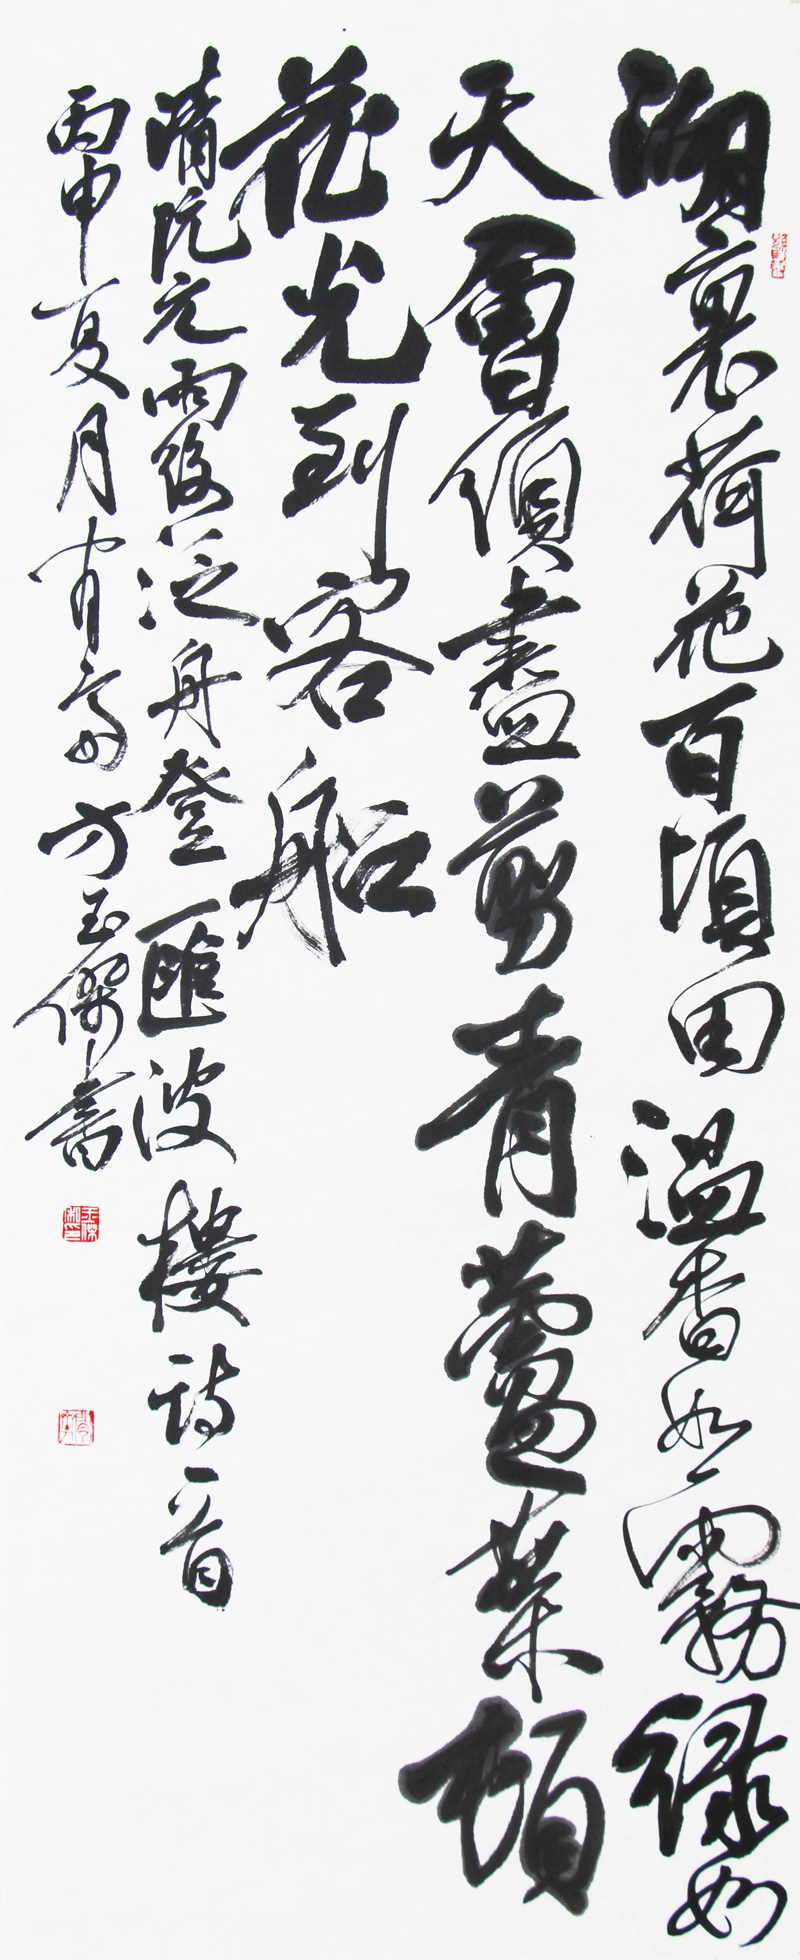 湖裏荷花百頃田溫香如霧綠如
天會須盡剪青蘆葉頓
花光到客船
清阮元雨後泛舟登匯波樓詩一首
丙申夏月宵高方玉傑書